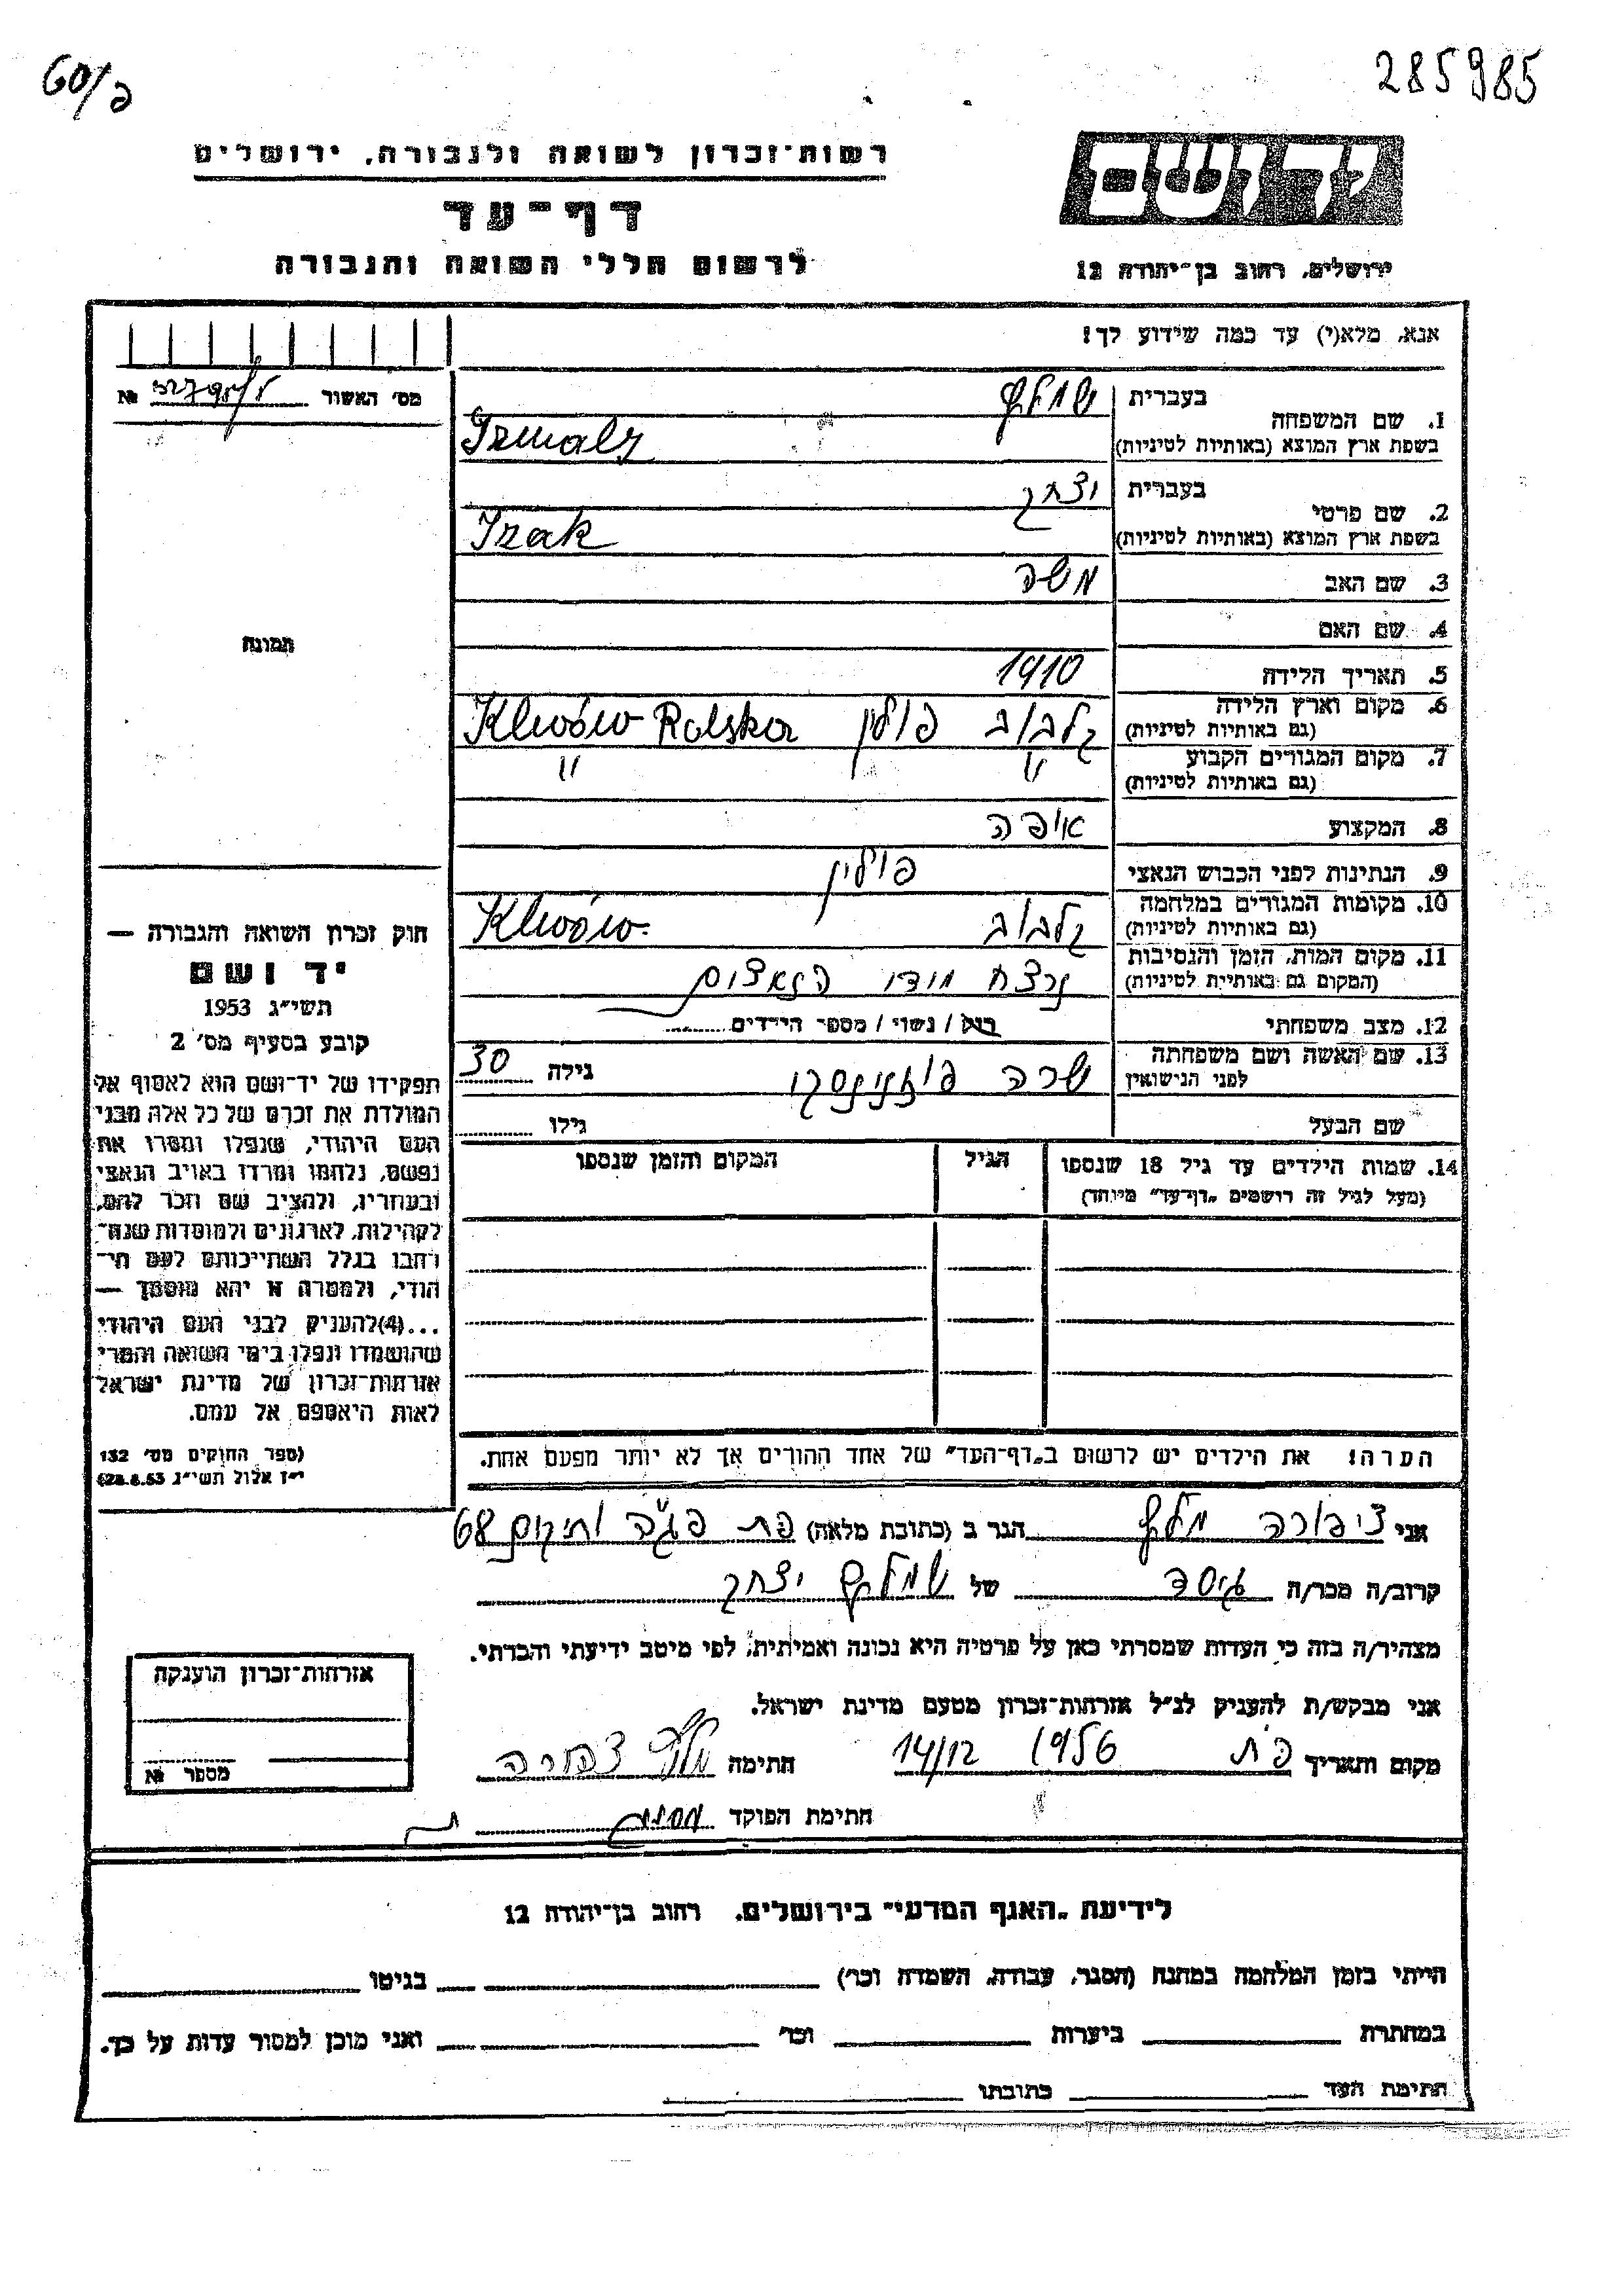 60/פ
285985
רשות־זכרון לשואה ולגבורה, ירושלים
דף־עד
לרשום חללי השואה והגבורה
יד ושם
ירושלים, רחוב בן־יהודה 12
אנא, מלא(י) עד כמה שידוע לך!
מס׳ האשור №
1. שם המשפחה
בעברית
בשפת ארץ המוצא (באותיות לטיניות)
2. שם פרטי
בעברית יצחק
בשפת ארץ המוצא (באותיות לטיניות) Izak
3. שם האב משה
4. שם האם
5. תאריך הלידה 1910
6. מקום וארץ הלידה קלבוב פולין Klwów Polska
(גם באותיות לטיניות)
7. מקום המגורים הקבוע " "
(גם באותיות לטיניות)
8. המקצוע אופה
9. הנתינות לפני הכבוש הנאצי פולין
10. מקומות המגורים במלחמה קלבוב Klwów
(גם באותיות לטיניות)
11. מקום המות, הזמן והנסיבות נרצח הנאצים
(המקום גם באותיות לטיניות)
12. מצב משפחתי רוק / נשוי / מספר הילדים
13. שם האשה ושם משפחתה שרה גילה 30
לפני הנישואין
שם הבעל גילו
14. שמות הילדים עד גיל 18 שנספו הגיל המקום והזמן שנספו
(מעל לגיל זה רושמים „דף־עד" מיוחד)
הערה: את הילדים יש לרשום ב„דף־העד" של אחד ההורים אך לא יותר מפעם אחת.
תמונה
חוק זכרון השואה והגבורה —
יד ושם
תשי״ג 1953
קובע בסעיף מס׳ 2
תפקידו של יד־ושם הוא לאסוף אל
המולדת את זכרם של כל אלה מבני
העם היהודי, שנפלו ומסרו את
נפשם, נלחמו ומרדו באויב הנאצי
ובעוזריו, ולהציב שם וזכר להם,
לקהילות, לארגונים ולמוסדות שנח־
רבו בגלל השתייכותם לעם הי־
הודי, ולמטרה זו יהא מוסמך —
...(4)להעניק לבני העם היהודי
שהושמדו ונפלו בימי השואה והמרי
אזרחות־זכרון של מדינת ישראל
לאות היאספם אל עמם.
(ספר החוקים מס׳ 132
י״ז אלול תשי״ג 28.8.53)
אני ציפורה הגר ב (כתובת מלאה) פת 68
קרוב/ה מכר/ה גיסה של יצחק
מצהיר/ה בזה כי העדות שמסרתי כאן על פרטיה היא נכונה ואמיתית, לפי מיטב ידיעתי והכרתי.
אני מבקש/ת להעניק לנ״ל אזרחות־זכרון מטעם מדינת ישראל.
מקום ותאריך פת 14/12 1956 חתימה
חתימת הפוקד
אזרחות־זכרון הוענקה
מספר №
לידיעת „האגף המדעי" בירושלים, רחוב בן־יהודה 12
הייתי בזמן המלחמה במחנה (הסגר, עבודה, השמדה וכו׳) בגיטו
במחתרת ביערות וכו׳ ואני מוכן למסור עדות על כך.
חתימת העד כתובתו